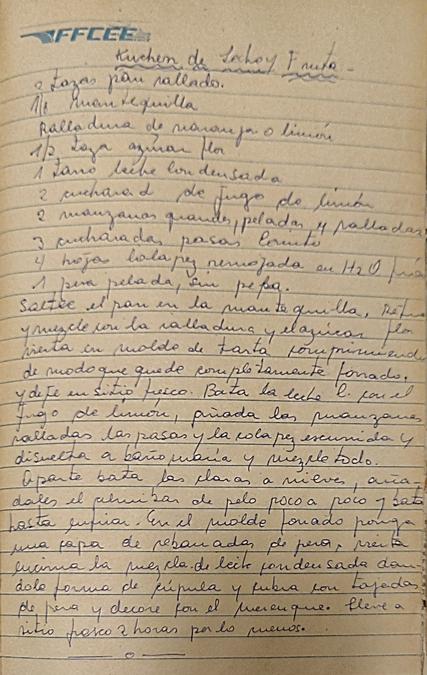 FFCEE
Kuchen de Leche y Fruta -
2 tazas pan rallado.
1/8 mantequilla
Ralladura de naranja o limón
1/2 taza azucar flor
1 tarro leche Condensada
2 cucharad de jugo de limón
2 manzanas grandes, peladas y ralladas
3 cucharadas pasas Corinto
4 hojas colapez remojada en H2O fria
1 pera pelada, sin pepa.
Saltée el pan en la mantequilla,
y mezcle con la ralladura y el azúcar flor
vierta en molde de tarta comprimiendo
de modo que quede completamente forrado.
y deje en sitio fresco. Bata la leche C. con el
jugo de limón, añada las manzanas
ralladas las pasas y la colapez escurrida y
disuelta a baño maría y mezcle todo.
Aparte bata las claras a nieves, aña-
dales el almibar de pelo poco a poco y bata
hasta enfriar. En el molde forrado ponga
una capa de rebanadas de pera, vierta
encima la mezcla de leche condensada dan-
dole forma de cúpula y cubra con tajadas
de pera y decore con el merengue. lleve a
sitio fresco 2 horas por lo menos.